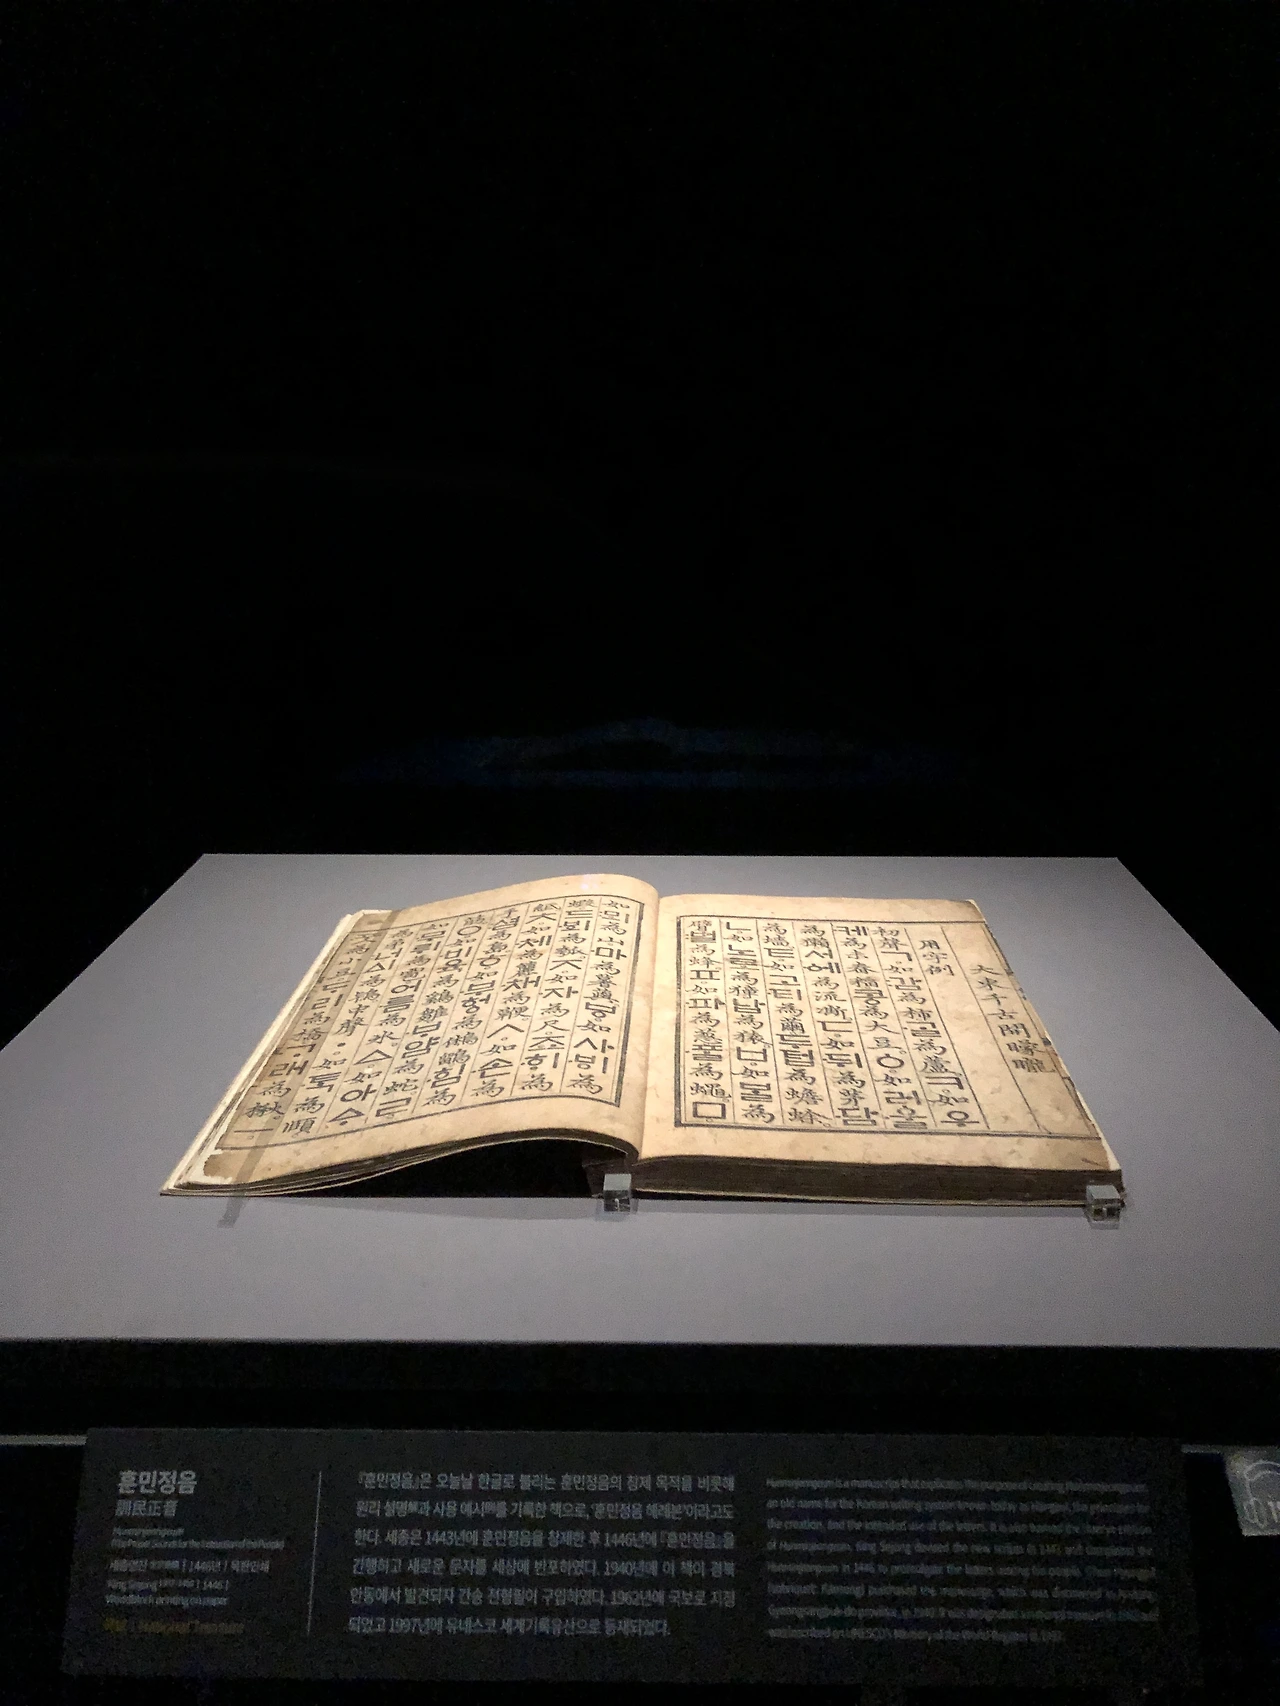 大東千古開矇矓
用字例
初聲ㄱ。如감為柿。ᄀᆞᆯ為蘆。ㅋ。如우
케為未舂稻。콩為大豆。ㆁ。如러울
為獺。서에為流凘。ㄷ。如뒤為茅。담
為墻。ㅌ。如고티為繭。두텁為蟾蜍。
ㄴ。如노로為獐。납為猿。ㅂ。如ᄇᆞᆯ為
臂。벌為蜂。ㅍ。如파為葱。ᄑᆞᆯ為蠅。ㅁ
如뫼為山。마為薯藇。ㅸ。如사ᄫᅵ為
蝦。드ᄫᅴ為瓠。ㅈ。如자為尺。죠ᄒᆡ為
紙。ㅊ。如체為籭。채為鞭。ㅅ。如손為
手。셤為島。ㅎ。如부헝為鵂鶹。힘為
筋。ㅇ。如비육為鷄雛。ᄇᆞ얌為蛇。ㄹ
如무뤼為雹。어름為氷。ㅿ。如아ᅀᆞ
為弟。너ᅀᅵ為鴇。中聲ㆍ。如ᄐᆞᆨ為頤
為小豆。ᄃᆞ리為橋。ᄀᆞ래為楸
훈민정음
訓民正音
Hunminjeongeum
(The Proper Sounds for the Instruction of the People)
세종명찬 | 1446년 | 목판인쇄
King Sejong | 1446 |
Woodblock printing on paper
국보 | National Treasure
『훈민정음』은 오늘날 한글로 불리는 훈민정음의 창제 목적을 비롯해
원리 설명解과 사용 예시例를 기록한 책으로, '훈민정음 해례본'이라고도
한다. 세종은 1443년에 훈민정음을 창제한 후 1446년에 『훈민정음』을
간행하고 새로운 문자를 세상에 반포하였다. 1940년에 이 책이 경북
안동에서 발견되자 간송 전형필이 구입하였다. 1962년에 국보로 지정
되었고 1997년에 유네스코 세계기록유산으로 등재되었다.
Hunminjeongeum is a manuscript that explains the purpose of creating Hunminjeongeum,
an old name for the Korean writing system known today as Hangeul, the principles for
the creation, and the intended use of the letters. It is also named the Haerye Edition
of Hunminjeongeum. King Sejong devised the new scripts in 1443 and completed the
Hunminjeongeum in 1446 to promulgate the letters among the people.
purchased the manuscript, which was discovered in Andong,
Gyeongsangbuk-do province, in 1940. It was designated a national treasure in 1962 and
was inscribed on UNESCO's Memory of the World Register in 1997.